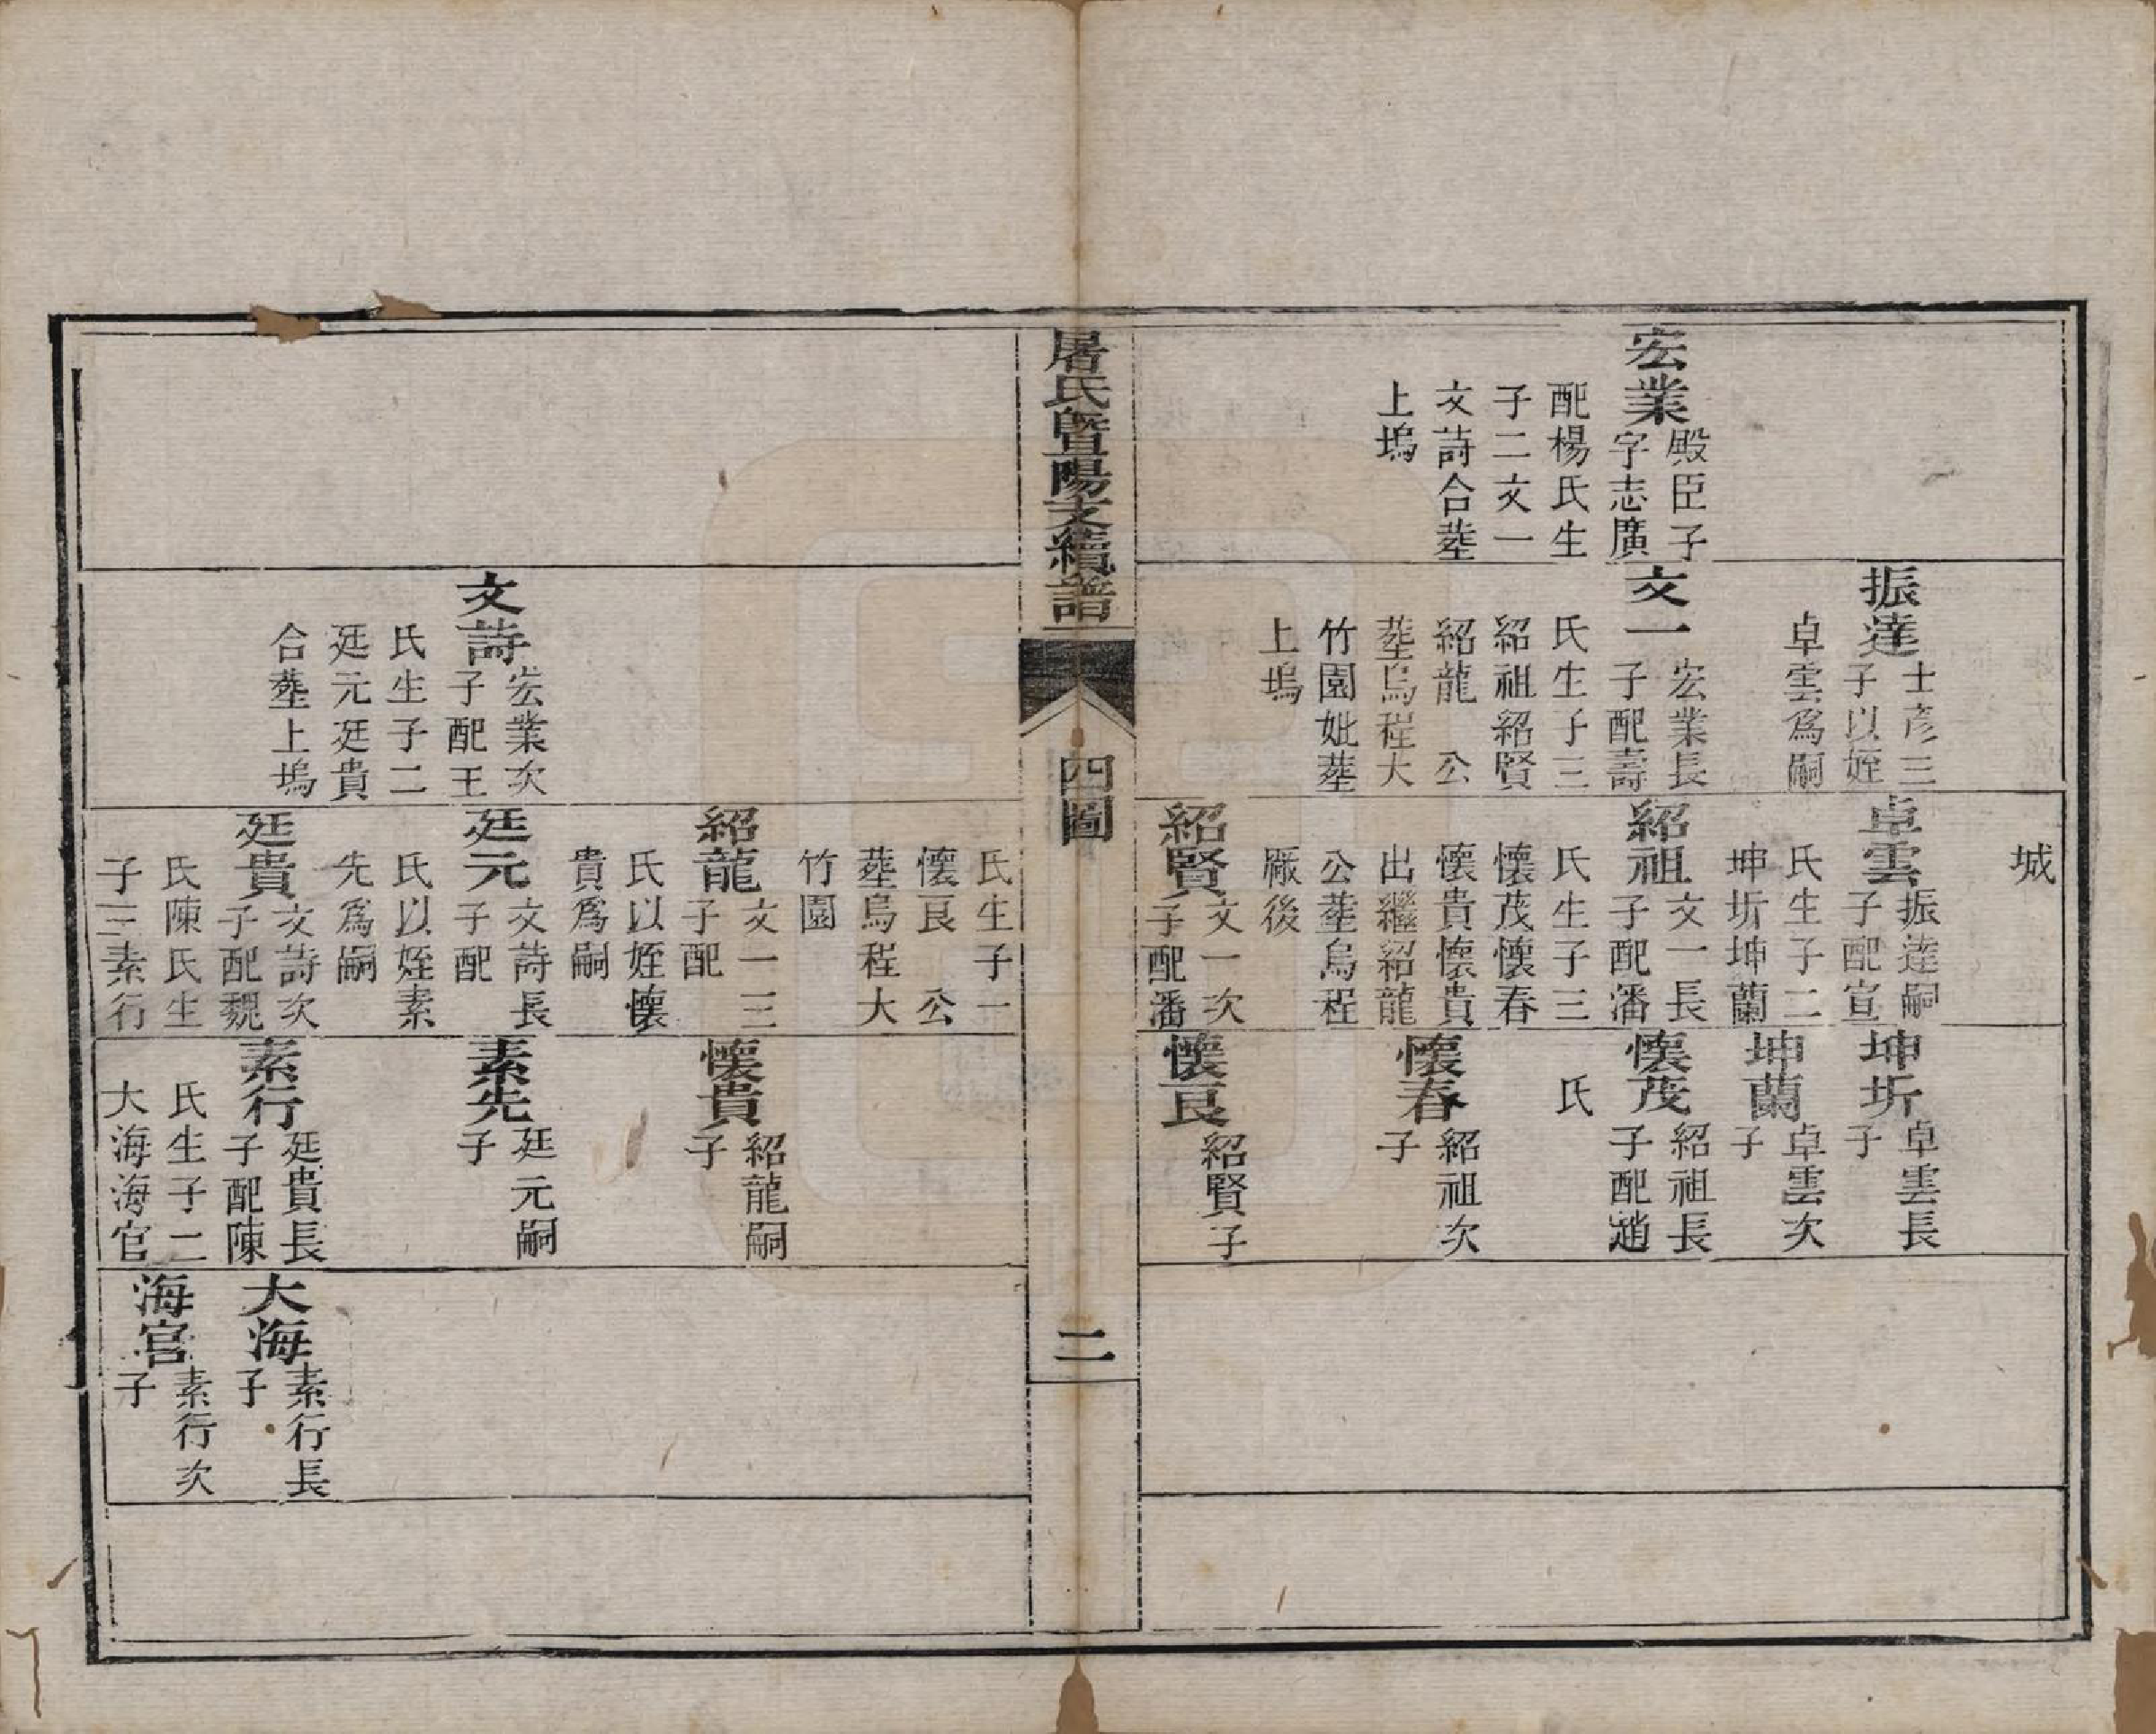 宏業
殿臣子
字志廣
配楊氏生
子二文一
文詩合塟
上塢
振達
士彥三
子以姪
卓雲爲嗣
文一
宏業長
子配壽
氏生子三
紹祖紹賢
紹龍　公
塟烏程大
竹園妣塟
上塢
城
卓雲
振達嗣
子配宣
氏生子二
坤圻坤蘭
紹祖
文一長
子配潘
氏生子三
懷茂懷春
懷貴懷貴
出繼紹龍
公塟烏程
廠後
紹賢
文一次
子配潘
坤圻
卓雲長
子
坤蘭
卓雲次
子
懷茂
紹祖長
子配趙
氏
懷春
紹祖次
子
懷良
紹賢子
屠氏暨陽支續譜
四圖
二
文詩
宏業次
子配王
氏生子二
廷元廷貴
合塟上塢
氏生子一
懷良　公
塟烏程大
竹園
紹龍
文一三
子配
氏以姪懷
貴爲嗣
廷元
文詩長
子配
氏以姪素
先爲嗣
廷貴
文詩次
子配魏
氏陳氏生
子三素行
懷貴
紹龍嗣
子
素先
廷元嗣
子
素行
廷貴長
子配陳
氏生子二
大海海官
大海
素行長
子
海官
素行次
子